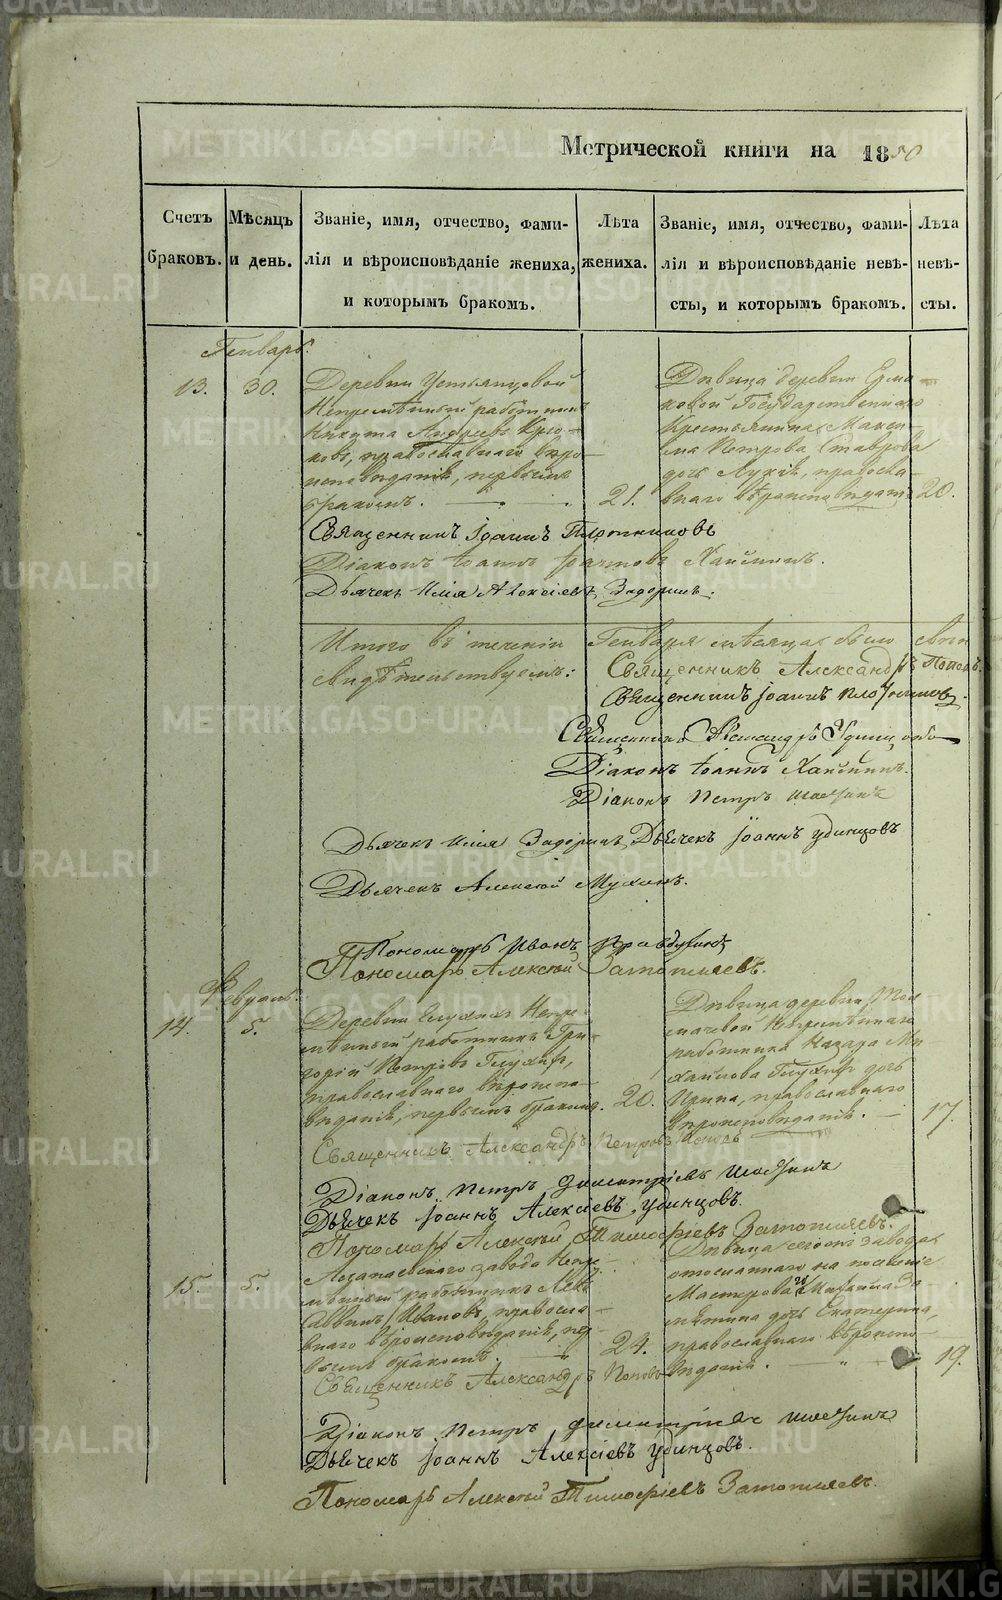 Метрической книги на 1850
Счетъ браковъ.
Мѣсяцъ и день.
Званіе, имя, отчество, фами-
лія и вѣроисповѣданіе жениха,
и которымъ бракомъ.
Лѣта жениха.
Званіе, имя, отчество, фами-
лія и вѣроисповѣданіе невѣ-
сты, и которымъ бракомъ.
Лѣта невѣ-
сты.
Генварь.
13.
30.
Деревни Устьянцовой
Непремѣнный работникъ
Никита Андреевъ Крю-
ковъ, православнаго вѣро-
исповѣданія, первымъ
бракомъ.
21.
Дѣвица деревни Ерма-
ковой Государственнаго
крестьянина Макси-
ма Петрова Ставрова
дочь, правосла-
внаго вѣроисповѣдан.
20.
Священникъ Іоаннъ Плотниковъ
Діаконъ Іоаннъ Хайминъ.
Дьячекъ Илія Алексіевъ Задоринъ.
Итого въ теченіи Генваря мѣсяца было
свидѣтельствуемъ:
Священникъ Александръ Поповъ.
Священникъ Іоаннъ Плотниковъ.
Священникъ Александръ Удинцовъ
Діаконъ Іоаннъ Хайминъ.
Діаконъ Петръ Шаньгинъ
Дьячекъ Илія Задоринъ, Дьячекъ Іоаннъ Удинцовъ
Дьячекъ Алексій Мухинъ.
Пономарь Иванъ
Пономарь Алексій Затопляевъ.
Февраль.
14.
5.
Деревни Глухихъ Непре-
мѣнный работникъ Гри-
горій Петровъ Глухихъ,
православнаго вѣроиспо-
вѣданія, первымъ бракомъ.
20.
Дѣвица деревни Тол-
мачевой Непремѣннаго
работника Назара Ми-
хайлова Глухихъ дочь
Ирина, православнаго
вѣроисповѣданія.
17.
Священникъ Александръ Петровъ Поповъ
Діаконъ Петръ Димитріевъ Шаньгинъ
Дьячекъ Іоаннъ Алексіевъ Удинцовъ.
Пономарь Алексій Тимофіевъ Затопляевъ.
15.
5.
Алапаевскаго завода Непре-
мѣнный работникъ Левъ
Саввинъ Ивановъ, правосла-
внаго вѣроисповѣданія, пер-
вымъ бракомъ.
24.
Дѣвица сегожъ завода
отосланнаго на поселеніе
Мастероваго
дочь Екатерина,
православнаго вѣроиспо-
вѣданія.
19.
Священникъ Александръ Поповъ
Діаконъ Петръ Димитріевъ Шаньгинъ
Дьячекъ Іоаннъ Алексіевъ Удинцовъ.
Пономарь Алексій Тимофіевъ Затопляевъ.
METRIKI.GASO-URAL.RU